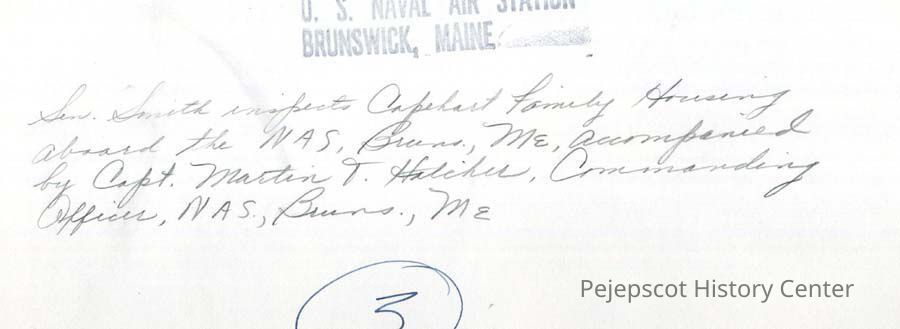 U. S. NAVAL AIR STATION
BRUNSWICK, MAINE
Sen. Smith inspects Capehart Family Housing
aboard the NAS, Bruns., ME, accompanied
by Capt. Martin T. Hatcher, Commanding
Officer, NAS., Bruns., ME
3
Pejepscot History Center